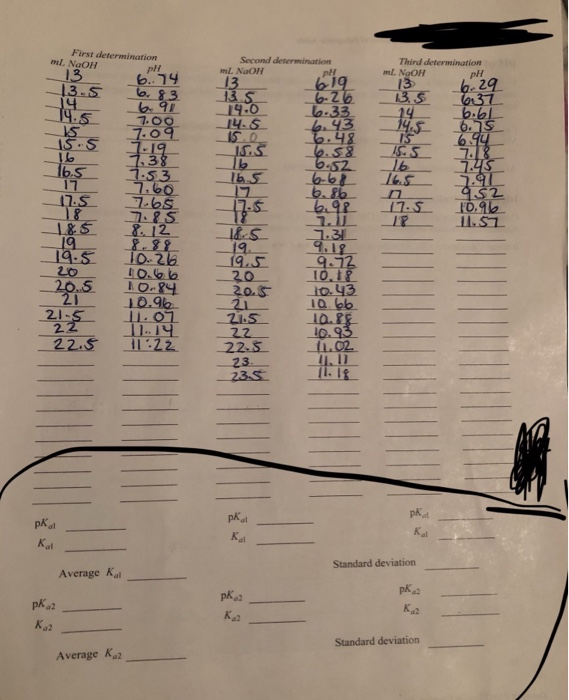 First determination Second determination Third determination
mL NaOH pH mL NaOH pH mL NaOH pH
13 6.74 13 6.19 13 6.29
13.5 6.83 13.5 6.26 13.5 6.37
14 6.91 14.0 6.33 14 6.61
14.5 7.00 14.5 6.43 14.5 6.75
15 7.09 15.0 6.48 15 6.94
15.5 7.19 15.5 6.58 15.5 7.18
16 7.38 16 6.52 16 7.45
16.5 7.53 16.5 6.68 16.5 7.91
17 7.60 17 6.86 17 9.52
17.5 7.65 17.5 6.98 17.5 10.96
18 7.85 18 7.11 18 11.57
18.5 8.12 18.5 7.31
19 8.88 19 9.18
19.5 10.26 19.5 9.72
20 10.66 20 10.18
20.5 10.84 20.5 10.43
21 10.96 21 10.66
21.5 11.07 21.5 10.88
22 11.14 22 10.93
22.5 11.22 22.5 11.02
23 11.11
23.5 11.18
pKa1 pKa1 pKa1
Ka1 Ka1 Ka1
Average Ka1 Standard deviation
pKa2 pKa2 pKa2
Ka2 Ka2 Ka2
Average Ka2 Standard deviation